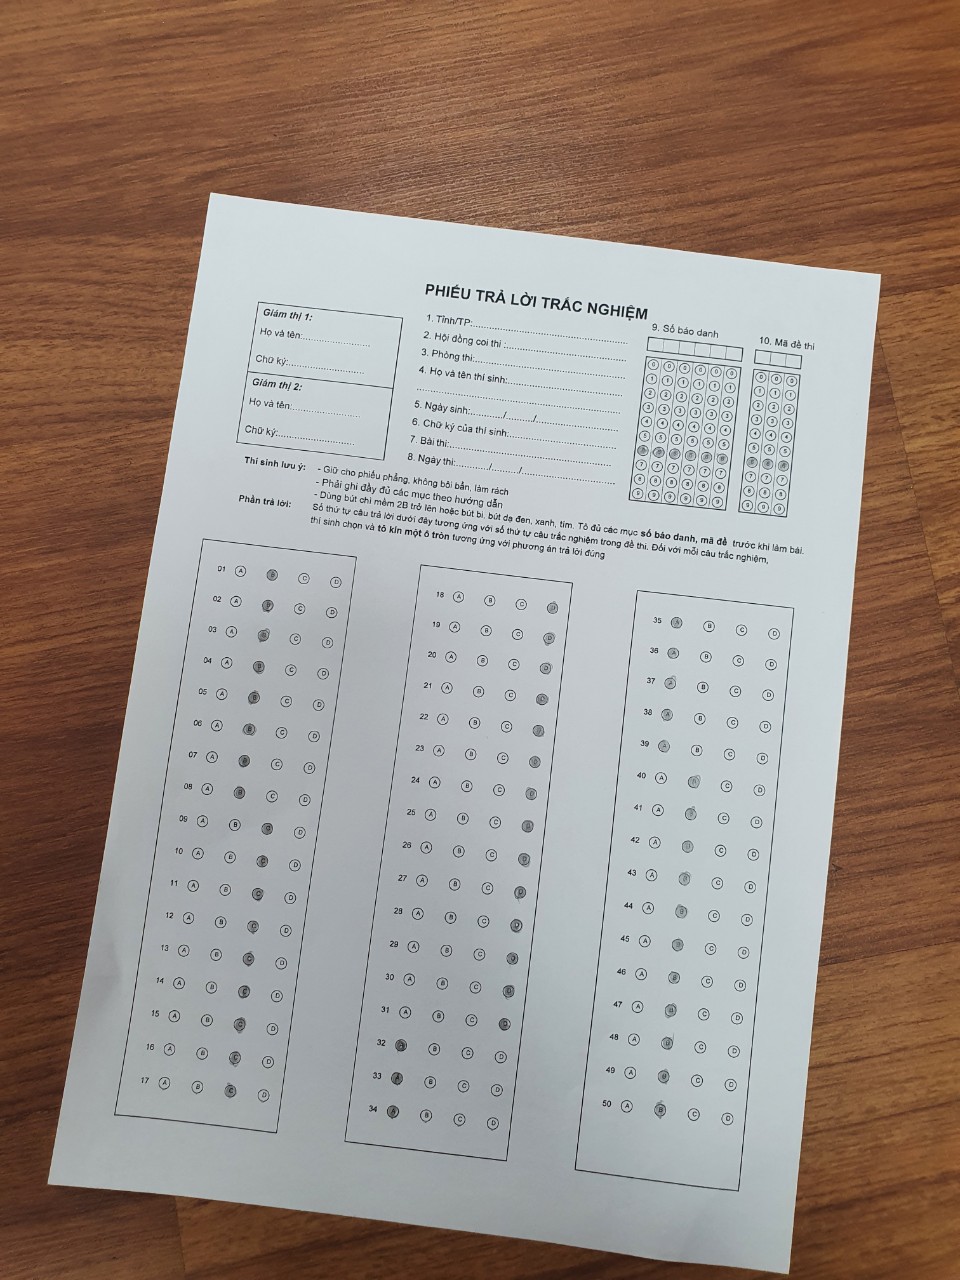 PHIẾU TRẢ LỜI TRẮC NGHIỆM
Giám thị 1:
Họ và tên:........................
Chữ ký:...........................
Giám thị 2:
Họ và tên:........................
Chữ ký:...........................
1. Tỉnh/TP:......................................................
2. Hội đồng coi thi :..........................................
3. Phòng thi:....................................................
4. Họ và tên thí sinh:.......................................
.......................................................................
5. Ngày sinh:........../........./............................
6. Chữ ký của thí sinh:.....................................
7. Bài thi:........................................................
8. Ngày thi:........../........./...............................
9. Số báo danh
0 0 0 0 0 0
1 1 1 1 1 1
2 2 2 2 2 2
3 3 3 3 3 3
4 4 4 4 4 4
5 5 5 5 5 5
7 7 7 7 7 7
8 8 8 8 8 8
9 9 9 9 9 9
10. Mã đề thi
0 0 0
1 1 1
2 2 2
3 3 3
4 4 4
5 5 5
7 7 7
8 8 8
9 9 9
Thí sinh lưu ý: - Giữ cho phiếu phẳng, không bôi bẩn, làm rách
- Phải ghi đầy đủ các mục theo hướng dẫn
- Dùng bút chì mềm 2B trở lên hoặc bút bi, bút dạ đen, xanh, tím. Tô đủ các mục số báo danh, mã đề trước khi làm bài.
Phần trả lời: Số thứ tự câu trả lời dưới đây tương ứng với số thứ tự câu trắc nghiệm trong đề thi. Đối với mỗi câu trắc nghiệm,
thí sinh chọn và tô kín một ô tròn tương ứng với phương án trả lời đúng
01 A B C D
02 A B C D
03 A B C D
04 A B C D
05 A B C D
06 A B C D
07 A B C D
08 A B C D
09 A B C D
10 A B C D
11 A B C D
12 A B C D
13 A B C D
14 A B C D
15 A B C D
16 A B C D
17 A B C D
18 A B C D
19 A B C D
20 A B C D
21 A B C D
22 A B C D
23 A B C D
24 A B C D
25 A B C D
26 A B C D
27 A B C D
28 A B C D
29 A B C D
30 A B C D
31 A B C D
32 A B C D
33 A B C D
34 A B C D
35 A B C D
36 A B C D
37 A B C D
38 A B C D
39 A B C D
40 A B C D
41 A B C D
42 A B C D
43 A B C D
44 A B C D
45 A B C D
46 A B C D
47 A B C D
48 A B C D
49 A B C C
50 A B C D